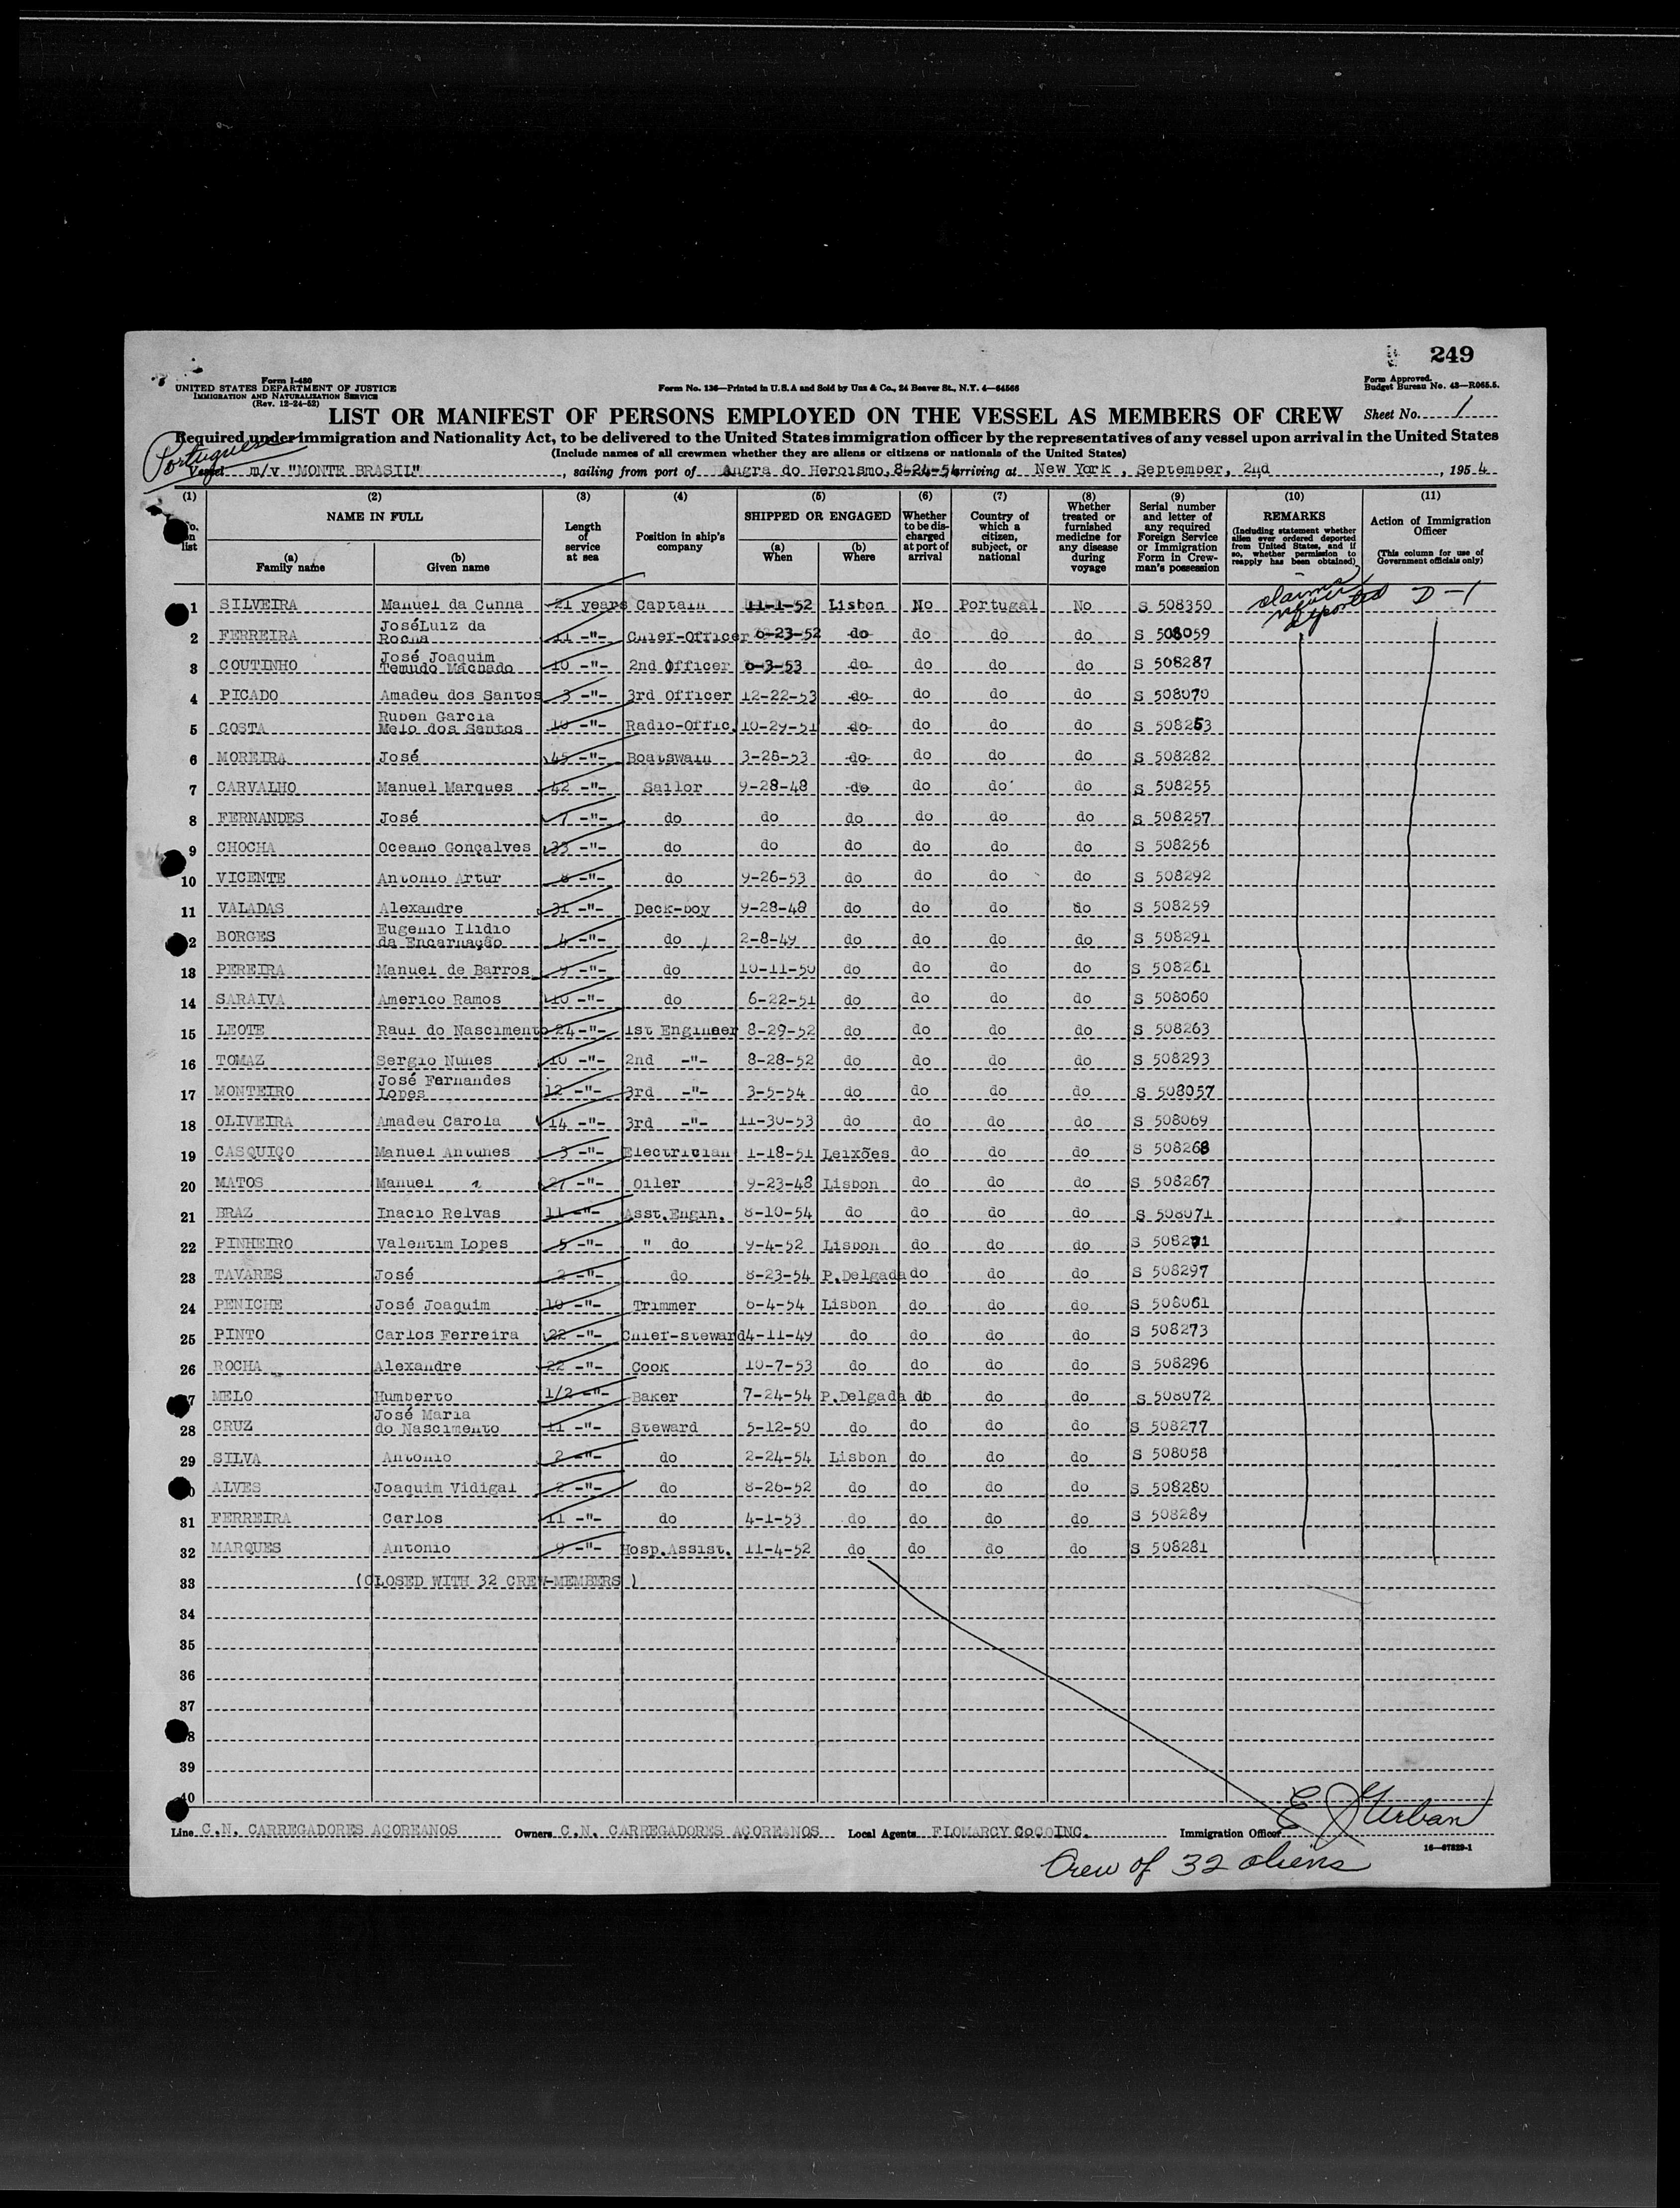 249
Form I-480
UNITED STATES DEPARTMENT OF JUSTICE
IMMIGRATION AND NATURALIZATION SERVICE
(Rev. 12-24-52)
Form No. 136—Printed in U.S.A and Sold by Unz & Co., 24 Beaver St., N.Y. 4—64566
Form Approved.
Budget Bureau No. 43—R065.5.
LIST OR MANIFEST OF PERSONS EMPLOYED ON THE VESSEL AS MEMBERS OF CREW
Sheet No. 1
Required under immigration and Nationality Act, to be delivered to the United States immigration officer by the representatives of any vessel upon arrival in the United States
(Include names of all crewmen whether they are aliens or citizens or nationals of the United States)
Portuguese
Vessel m/v "MONTE BRASIL", sailing from port of Angra do Heroismo, 8-24-54 arriving at New York, September, 2nd, 1954
(1) (2) (3) (4) (5) (6) (7) (8) (9) (10) (11)
No. on list
NAME IN FULL
(a) Family name
(b) Given name
Length of service at sea
Position in ship's company
SHIPPED OR ENGAGED
(a) When
(b) Where
Whether to be discharged at port of arrival
Country of which a citizen, subject, or national
Whether treated or furnished medicine for any disease during voyage
Serial number and letter of any required Foreign Service or Immigration Form in Crewman's possession
REMARKS
(Including statement whether alien ever ordered deported from United States, and if so, whether permission to reapply has been obtained)
Action of Immigration Officer
(This column for use of Government officials only)
1 SILVEIRA Manuel da Cunha 21 years Captain 11-1-52 Lisbon No Portugal No S 508350 claims never deported D-1
2 FERREIRA JoséLuiz da Rocha 11 -"- Chief-Officer 6-23-52 do do do do S 508059
3 COUTINHO José Joaquim Temudo Machado 10 -"- 2nd Officer 6-3-53 do do do do S 508287
4 PICADO Amadeu dos Santos 3 -"- 3rd Officer 12-22-53 do do do do S 508070
5 COSTA Ruben Garcia Melo dos Santos 10 -"- Radio-Offic. 10-29-51 do do do do S 508253
6 MOREIRA José 45 -"- Boatswain 3-28-53 do do do do S 508282
7 CARVALHO Manuel Marques 42 -"- Sailor 9-28-48 do do do do S 508255
8 FERNANDES José 7 -"- do do do do do do S 508257
9 CHOCHA Oceano Gonçalves 33 -"- do do do do do do S 508256
10 VICENTE Antonio Artur 8 -"- do 9-26-53 do do do do S 508292
11 VALADAS Alexandre 31 -"- Deck-boy 9-28-48 do do do do S 508259
12 BORGES Eugenio Ilidio da Encarnação 4 -"- do 2-8-49 do do do do S 508291
13 PEREIRA Manuel de Barros 9 -"- do 10-11-50 do do do do S 508261
14 SARAIVA Americo Ramos 10 -"- do 6-22-51 do do do do S 508060
15 LEOTE Raul do Nascimento 24-"- 1st Engineer 8-29-52 do do do do S 508263
16 TOMAZ Sergio Nunes 10 -"- 2nd -"- 8-28-52 do do do do S 508293
17 MONTEIRO José Fernandes Lopes 12 -"- 3rd -"- 3-5-54 do do do do S 508057
18 OLIVEIRA Amadeu Carola 14 -"- 3rd -"- 11-30-53 do do do do S 508069
19 CASQUIÇO Manuel Antunes 3 -"- Electrician 1-18-51 Leixões do do do S 508268
20 MATOS Manuel 27 -"- Oiler 9-23-48 Lisbon do do do S 508267
21 BRAZ Inacio Relvas 11 -"- Asst.Engin. 8-10-54 do do do do S 508071
22 PINHEIRO Valentim Lopes 5 -"- " do 9-4-52 Lisbon do do do S 508271
23 TAVARES José 2 -"- do 8-23-54 P.Delgada do do do S 508297
24 PENICHE José Joaquim 10 -"- Trimmer 6-4-54 Lisbon do do do S 508061
25 PINTO Carlos Ferreira 22 -"- Chief-steward 4-11-49 do do do do S 508273
26 ROCHA Alexandre 22 -"- Cook 10-7-53 do do do do S 508296
27 MELO Humberto 1/2 -"- Baker 7-24-54 P.Delgada do do do S 508072
28 CRUZ José Maria do Nascimento 11 -"- Steward 5-12-50 do do do do S 508277
29 SILVA Antonio 2 -"- do 2-24-54 Lisbon do do do S 508058
30 ALVES Joaquim Vidigal 2 -"- do 8-26-52 do do do do S 508280
31 FERREIRA Carlos 11 -"- do 4-1-53 do do do do S 508289
32 MARQUES Antonio 9 -"- Hosp.Assist. 11-4-52 do do do do S 508281
33 (CLOSED WITH 32 CREW-MEMBERS )
34
35
36
37
38
39
40
Line C.N. CARREGADORES AÇOREANOS Owners C.N. CARREGADORES AÇOREANOS Local Agents FLOMARCY CoCOINC. Immigration Officer E J Urban
16—67829-1
Crew of 32 aliens